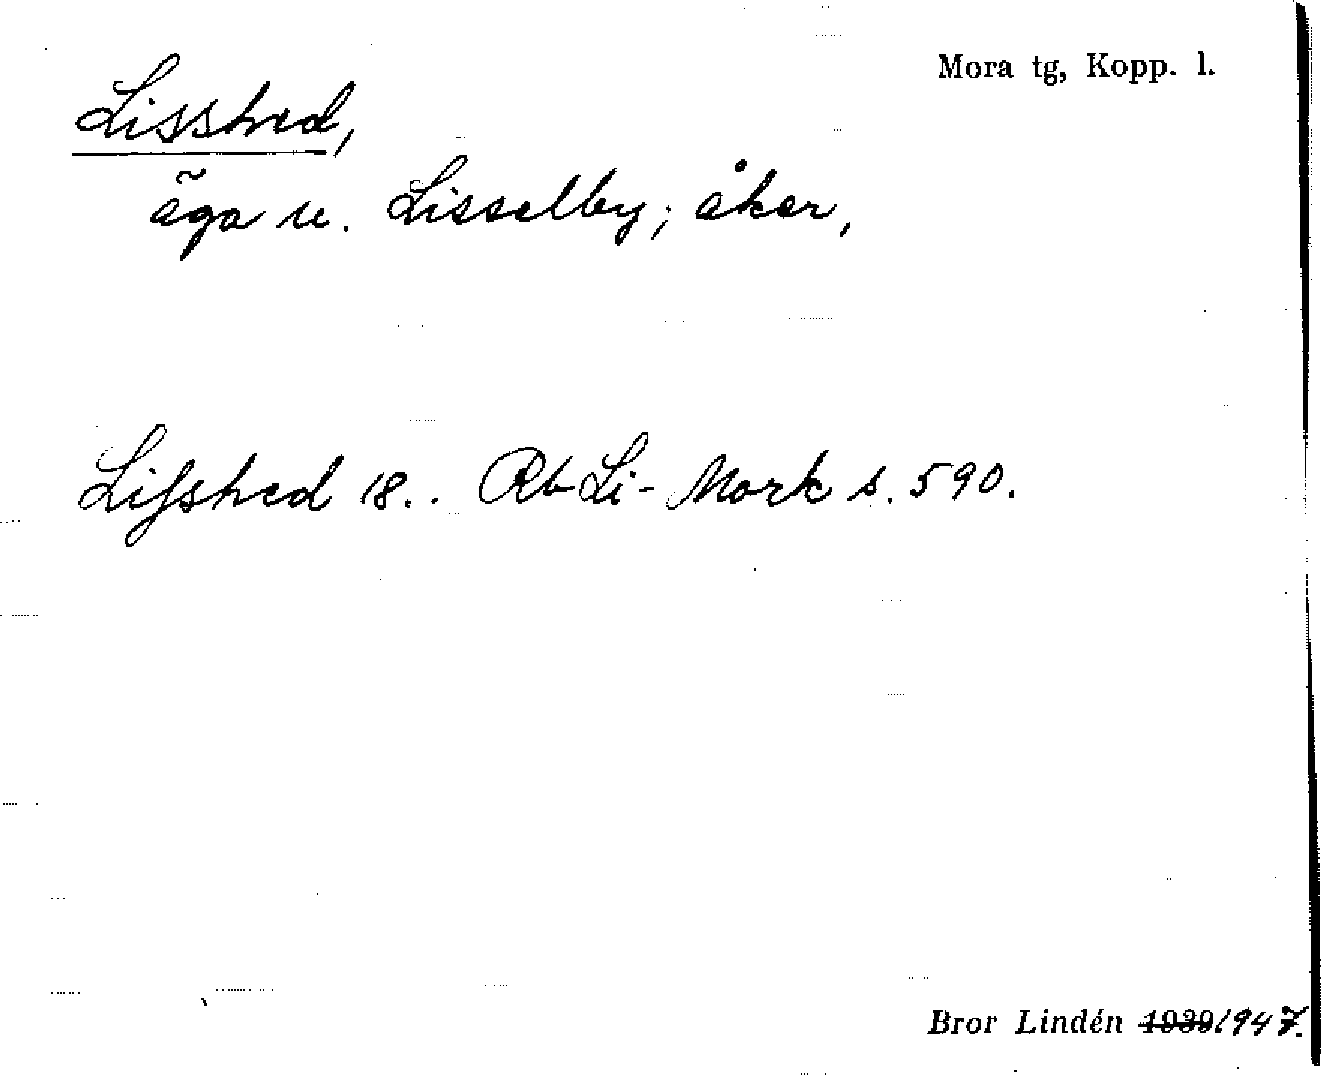 Mora tg, Kopp. l.
Lisshed,
äga u. Lisselby; åker,
Lifshed 18.. Rb Li-Mork s. 590.
Bror Lindén 1939 1947.